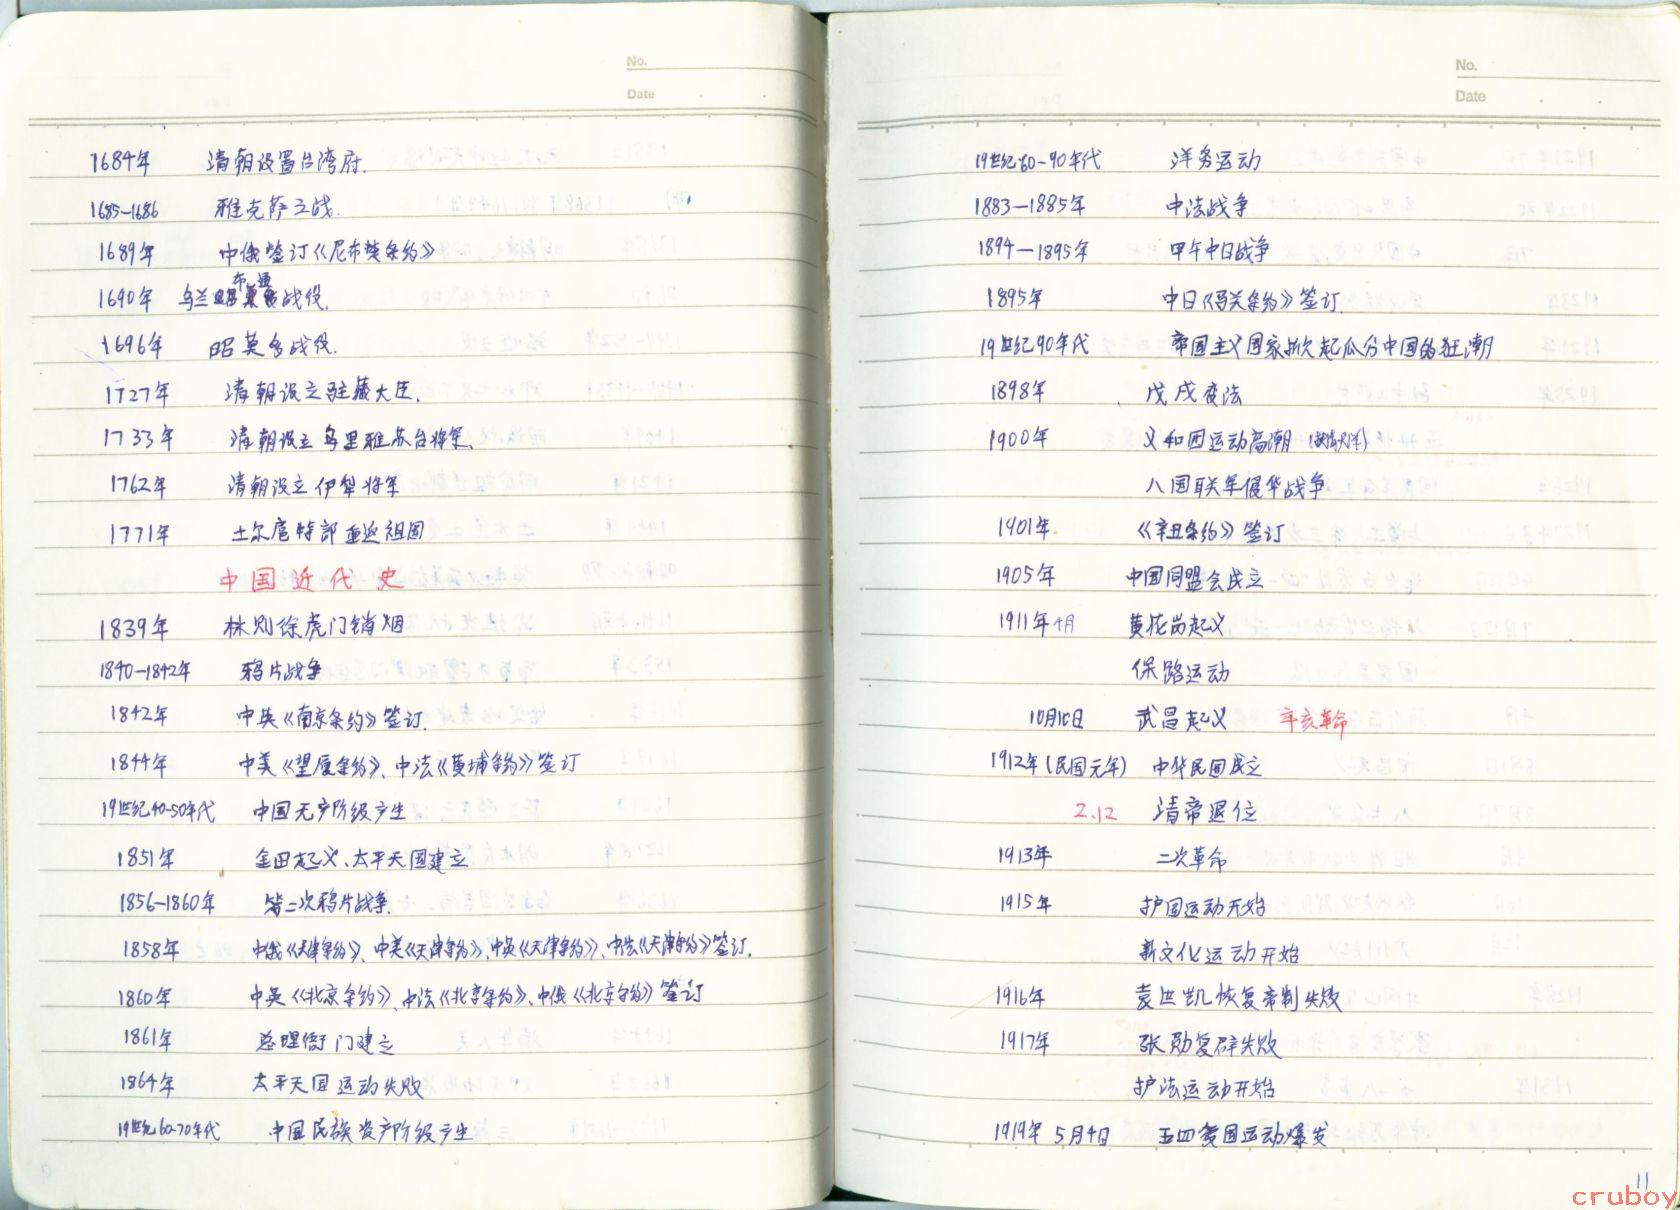 No.
Date
1684年 清朝设置台湾府.
1685-1686 雅克萨之战.
1689年 中俄签订《尼布楚条约》
布通
1690年 乌兰战役.
1696年 昭莫多战役.
1727年 清朝设立驻藏大臣.
1733年 清朝设立乌里雅苏台将军.
1762年 清朝设立伊犁将军
1771年 土尔扈特部重返祖国
中国近代史
1839年 林则徐虎门销烟
1840-1842年 鸦片战争
1842年 中英《南京条约》签订.
1844年 中美《望厦条约》、中法《黄埔条约》签订
19世纪40-50年代 中国无产阶级产生
1851年 金田起义、太平天国建立
1856-1860年 第二次鸦片战争.
1858年 中俄《天津条约》、中美《天津条约》、中英《天津条约》、中法《天津条约》签订.
1860年 中英《北京条约》、中法《北京条约》、中俄《北京条约》签订
1861年 总理衙门建立
1864年 太平天国运动失败
19世纪60-70年代 中国民族资产阶级产生
9
No.
Date
19世纪60-90年代 洋务运动
1883-1885年 中法战争
1894-1895年 甲午中日战争
1895年 中日《马关条约》签订.
19世纪90年代 帝国主义国家掀起瓜分中国的狂潮
1898年 戊戌变法
1900年 义和团运动高潮
八国联军侵华战争
1901年 《辛丑条约》签订
1905年 中国同盟会成立
1911年4月 黄花岗起义
保路运动
10月10日 武昌起义 辛亥革命
1912年(民国元年) 中华民国成立
2.12 清帝退位
1913年 二次革命
1915年 护国运动开始
新文化运动开始
1916年 袁世凯恢复帝制失败
1917年 张勋复辟失败
护法运动开始
1919年5月4日 五四爱国运动爆发
11
cruboy